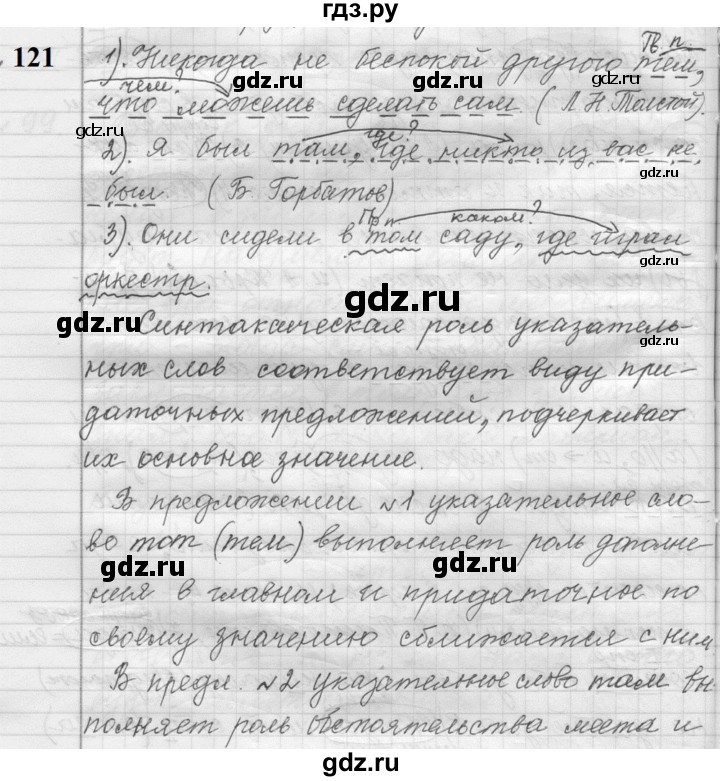 гдз.ру
121
Тв. п.
1). Никогда не беспокой другого тем,
чем?
что можешь сделать сам. (Л.Н.Толстой).
gdz.ru gdz.ru gdz.ru
где?
2). Я был там, где никто из вас не
gdz.ru gdz.ru
был. (Б. Горбатов)
Пр.п. каком?
3). Они сидели в том саду, где играл
оркестр.
gdz.ru
Синтаксическая роль указатель-
gdz.ru gdz.ru
ных слов соответствует виду при-
даточных предложений, подчеркивает
их основное значение.
В предложении №1 указательное сло-
во тот (тем) выполняет роль дополне-
gdz.ru gdz.ru
ния в главном и придаточное по
своему значению сближается с ним
В предл. №2 указательное слово там вы
полняет роль обстоятельства места и
gdz.ru gdz.ru